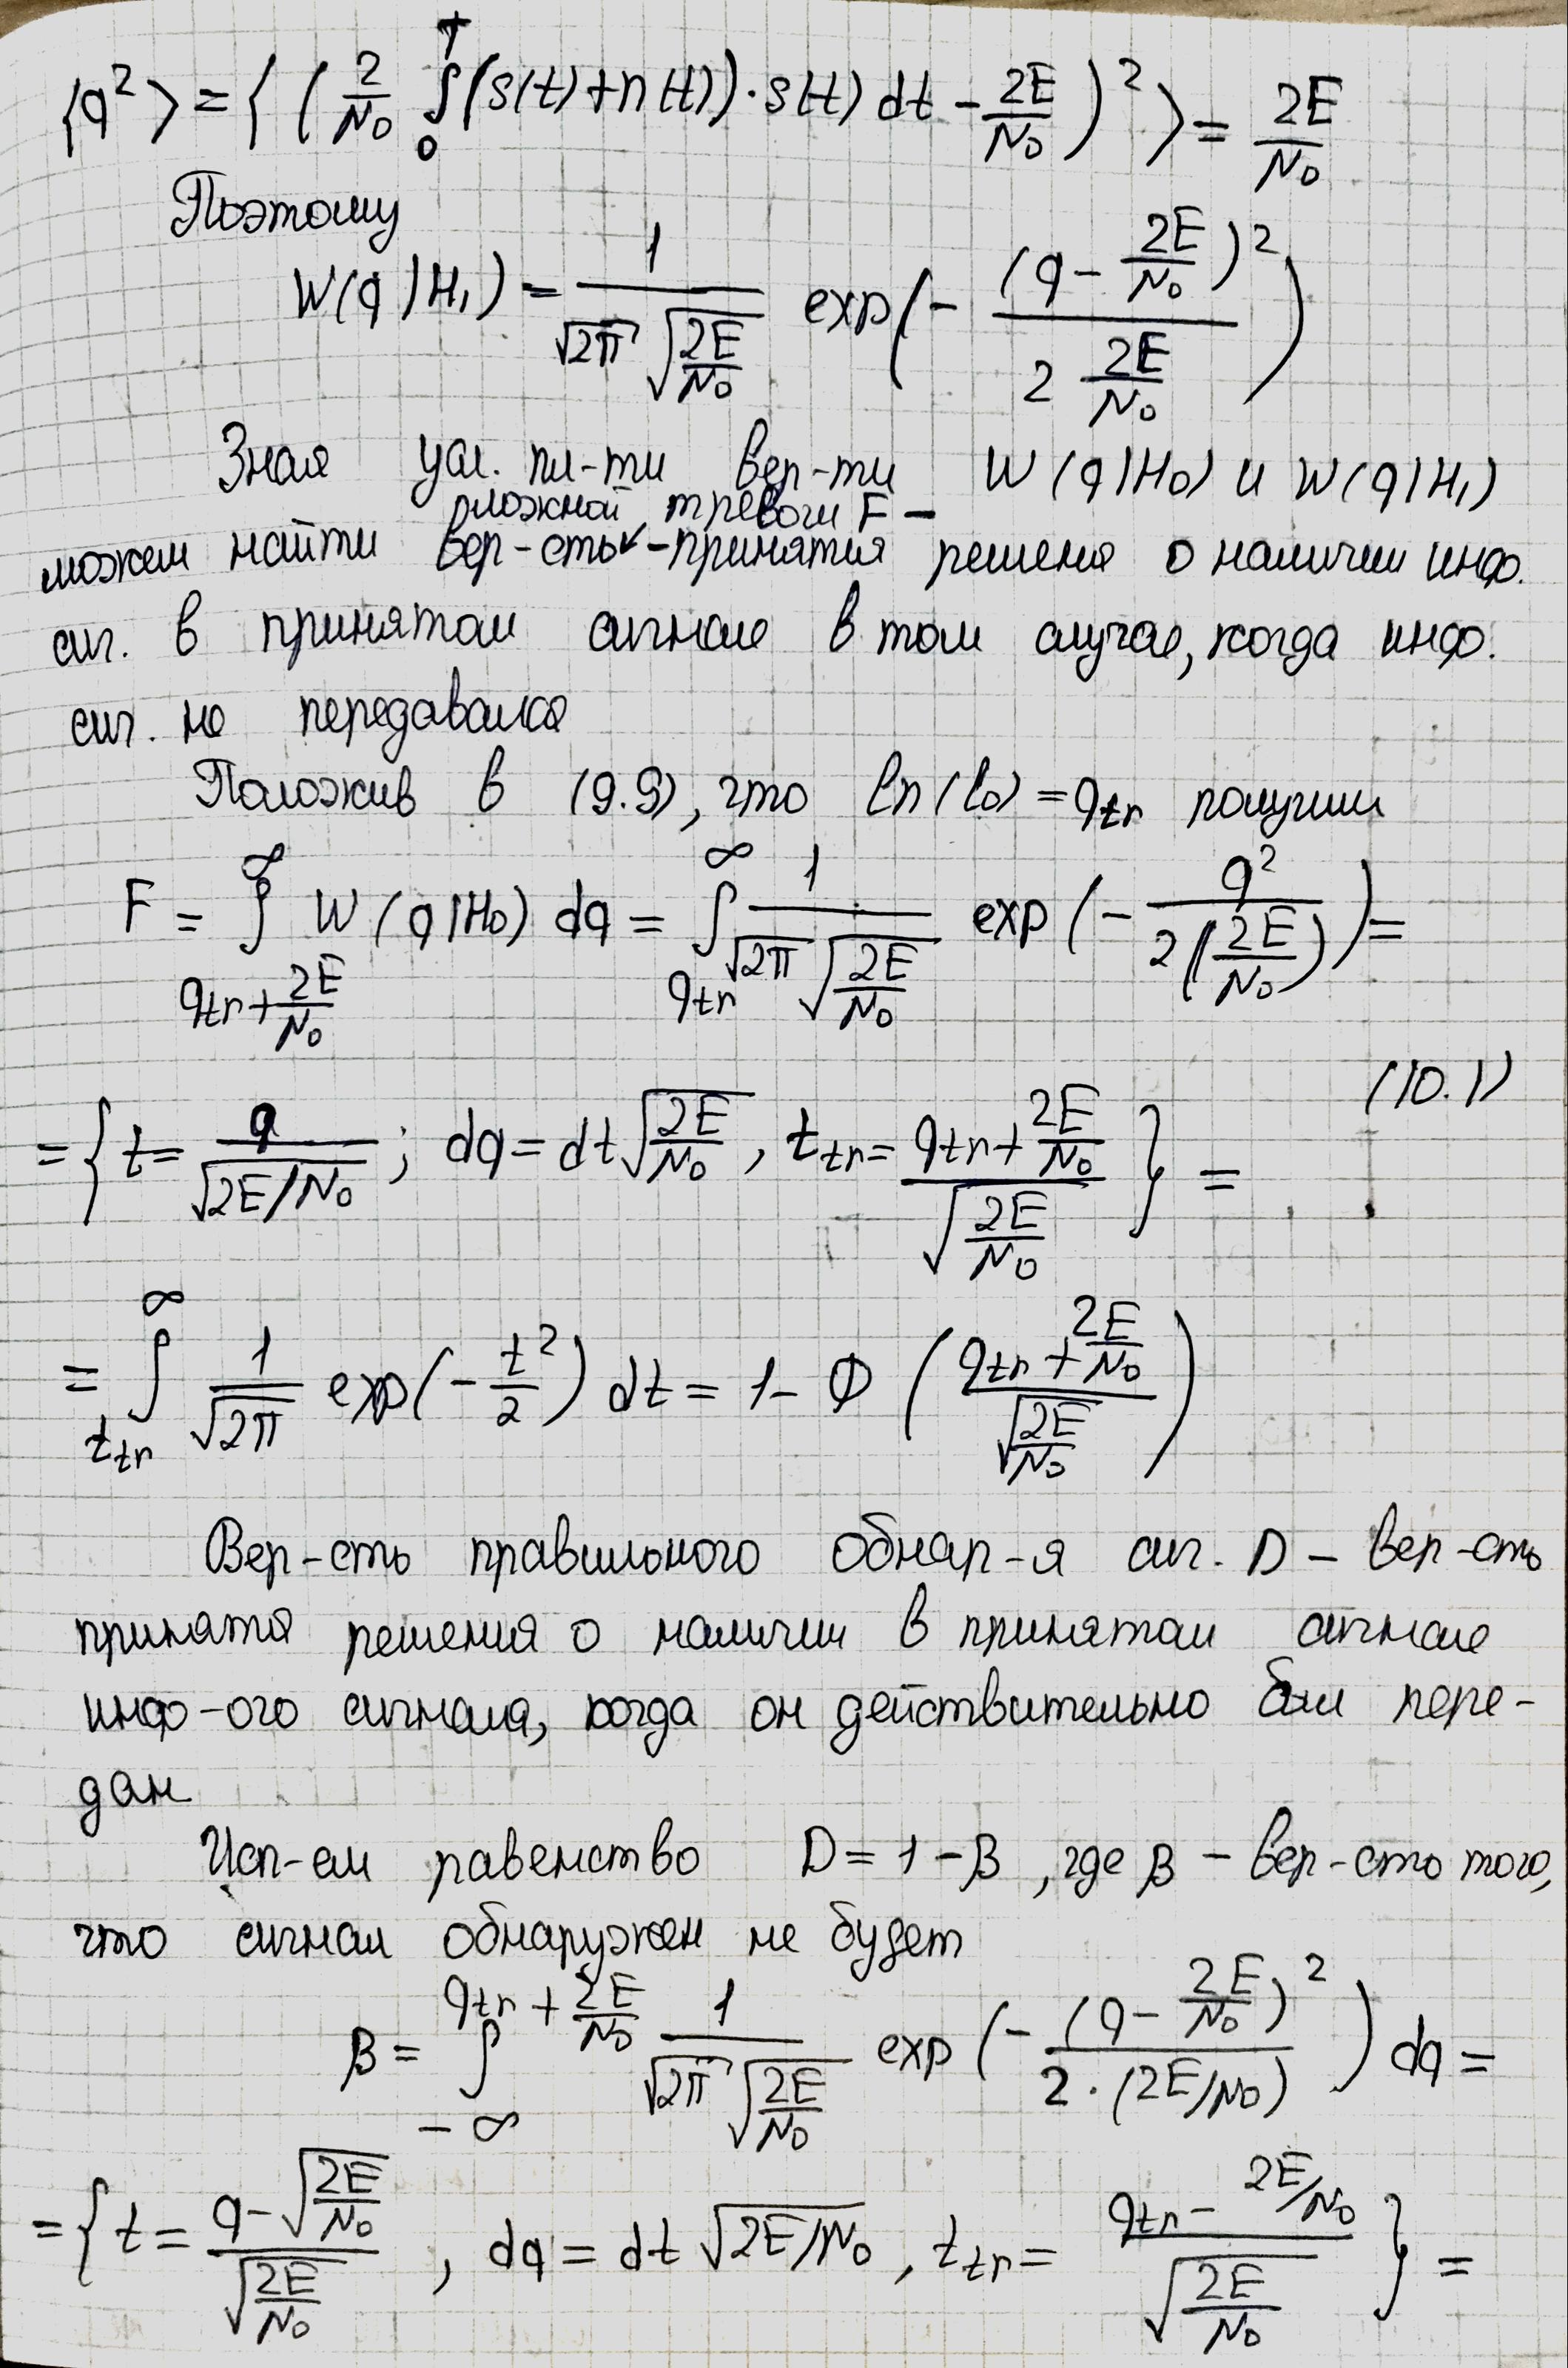 ⟨q²⟩ = ⟨( 2/N₀ ∫₀ᵀ (s(t)+n(t))·s(t) dt - 2E/N₀ )²⟩ = 2E/N₀
Поэтому
W(q|H₁) = 1/(√2π √(2E/N₀)) exp(- (q - 2E/N₀)² / (2 2E/N₀))
Зная усл. пл-ти вер-ти W(q|H₀) и W(q|H₁)
ложной тревоги F –
можем найти вер-сть - принятия решения о наличии инф.
сиг. в принятом сигнале в том случае, когда инф.
сиг. не передавался
Положив в (9.9), что ln(l₀) = q_tr получим
F = ∫_{q_tr + 2E/N₀}^∞ W(q|H₀) dq = ∫_{q_tr}^∞ 1/(√2π √(2E/N₀)) exp(- q²/(2(2E/N₀))) =
(10.1)
= { t = q/√(2E/N₀); dq = dt √(2E/N₀), t_tr = (q_tr + 2E/N₀)/√(2E/N₀) } =
= ∫_{t_tr}^∞ 1/√2π exp(- t²/2) dt = 1 - Ф((q_tr + 2E/N₀)/√(2E/N₀))
Вер-сть правильного обнар-я сиг. D – вер-сть
принятия решения о наличии в принятом сигнале
инф-ого сигнала, когда он действительно был пере-
дан
Исп-ем равенство D = 1 - β, где β – вер-сть того,
что сигнал обнаружен не будет
β = ∫_{-∞}^{q_tr + 2E/N₀} 1/(√2π √(2E/N₀)) exp(- (q - 2E/N₀)² / (2·(2E/N₀))) dq =
= { t = (q - √(2E/N₀))/√(2E/N₀), dq = dt √(2E/N₀), t_tr = (q_tr - 2E/N₀)/√(2E/N₀) } =